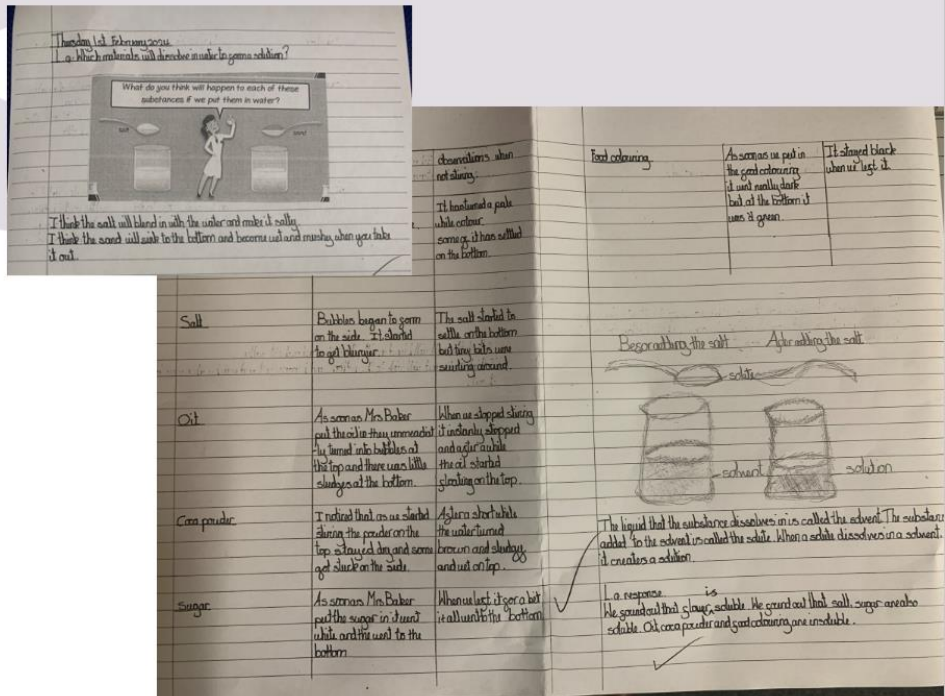 Thursday 1st February 2024
L.Q. Which materials will dissolve in water to form a solution?
What do you think will happen to each of these
substances if we put them in water?
salt
sand
I think the salt will blend in with the water and make it salty.
I think the sand will sink to the bottom and become wet and mushy when you take
it out.
observations when
not stiring.
It has turned a pale
white colour
some of it has settled
on the bottom.
Salt
Bubbles began to form
on the side. It started
to get blurryer.
The salt started to
settle on the bottom
but tiny bits were
swirling around.
Oil
As soon as Mrs Baker
put the oil in they immeadiat
-ly turned into bubbles at
the top and there was little
sludges at the bottom.
When we stopped stiring
it instantly stopped
and after a while
the oil started
floating on the top.
Coca powder
I noticed that as we started
stiring the powder on the
top stayed dry and some
got stuck on the side.
After a short while
the water turned
brown and sludgy
and wet on top.
Sugar
As soon as Mrs Baker
put the sugar in it went
white and the went to the
bottom
When we left it for a bit
it all went to the bottom
Food colouring
As soon as we put in
the food colouring
it went really dark
but at the bottom it
was a green.
It stayed black
when we left it.
Befor adding the salt
After adding the salt
solute
solvent
solution
The liquid that the substance dissolves in is called the solvent. The substan
added to the solvent is called the solute. When a solute dissolves in a solvent.
it creates a solution.
L.Q. response
is
We found out that flour, soluble. We found out that salt, sugar are also
soluble. Oil, coca powder and food colouring are insoluble.